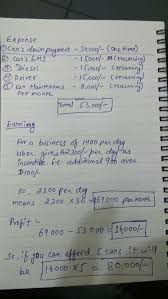 Expense
① Car's down payment - 30,000/- (One time)
② Car's EMI - 15,000/- (recurring)
③ Diesel - 15,000/- (recurring)
④ Driver - 15,000/- (recurring)
⑤ Car Maintenance - 8,000/- (recurring)
Per month
Total 53,000/-
Earning
For a business of 1400 per day
Uber gives 2300/- per day as
incentive i.e. additional 900 over
1400/-
So, 2300 per day
means 2300 X 30 = 69000 per month
Profit =
69000 - 53000 = 16000/-
So, if you can afford 5 cars it will
be 16000 X 5 = 80,000/-